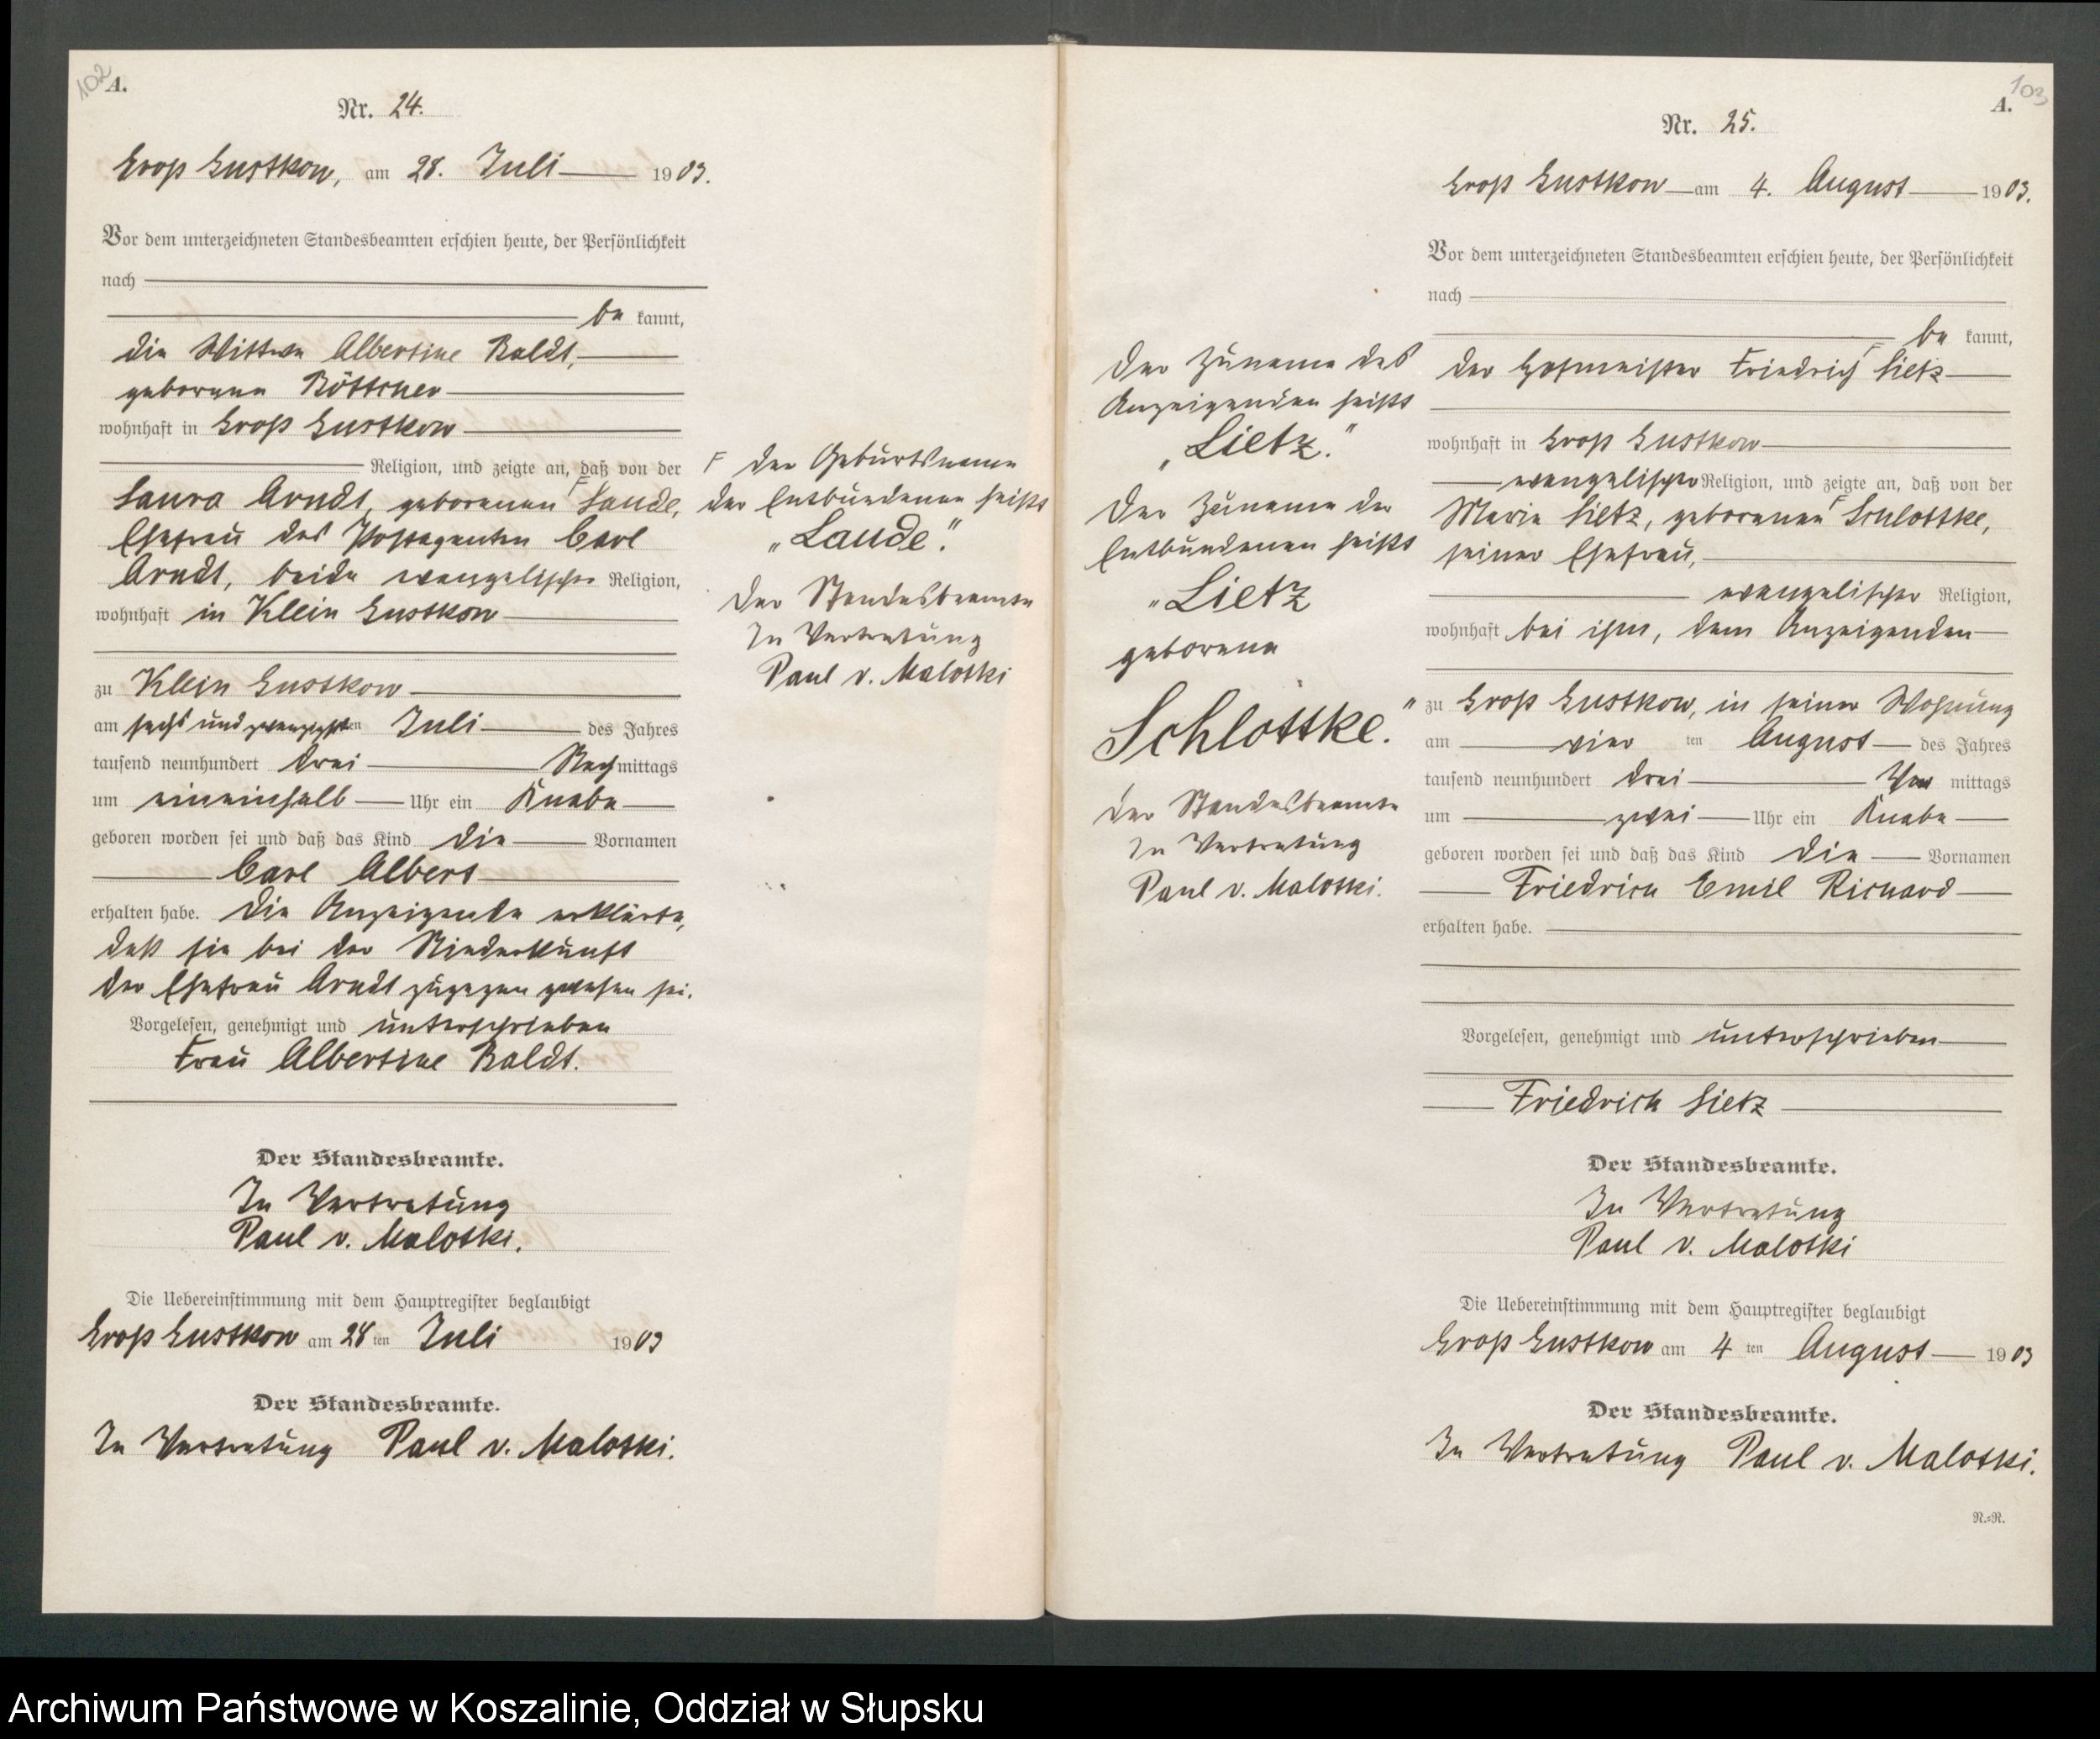 102
A.
Nr. 24.
Groß Gustkow, am 28. Juli 1903.
Vor dem unterzeichneten Standesbeamten erschien heute, der Persönlichkeit
nach
be kannt,
die Wittwe Albertine Baldt,
geborene Böttcher
wohnhaft in Groß Gustkow
Religion, und zeigte an, daß von der
Laura Arndt, geborenen F Laude,
Ehefrau des Postagenten Carl
Arndt, beide evangelischer Religion,
wohnhaft in Klein Gustkow
zu Klein Gustkow
am sechs und zwanzigsten Juli des Jahres
tausend neunhundert drei Nachmittags
um eineinhalb Uhr ein Knabe
geboren worden sei und daß das Kind die Vornamen
Carl Albert
erhalten habe. Die Anzeigende erklärte,
daß sie bei der Niederkunft
der Ehefrau Arndt zugegen gewesen sei.
Vorgelesen, genehmigt und unterschrieben
Frau Albertine Baldt.
Der Standesbeamte.
In Vertretung
Paul v. Malotki.
Die Uebereinstimmung mit dem Hauptregister beglaubigt
Groß Gustkow am 28ten Juli 1903
Der Standesbeamte.
In Vertretung Paul v. Malotki.
F der Geburtsname
der Entbundenen heißt
„Laude".
Der Standesbeamte
In Vertretung
Paul v. Malotki
103
A.
Nr. 25.
Groß Gustkow am 4. August 1903.
Vor dem unterzeichneten Standesbeamten erschien heute, der Persönlichkeit
nach
be kannt,
der Hofmeister Friedrich F Lietz
wohnhaft in Groß Gustkow
evangelischer Religion, und zeigte an, daß von der
Marie Lietz, geborenen F Schlottke,
seiner Ehefrau,
evangelischer Religion,
wohnhaft bei ihm, dem Anzeigenden
zu Groß Gustkow, in seiner Wohnung
am vier ten August des Jahres
tausend neunhundert drei Vor mittags
um zwei Uhr ein Knabe
geboren worden sei und daß das Kind die Vornamen
Friedrich Emil Richard
erhalten habe.
Vorgelesen, genehmigt und unterschrieben
Friedrich Lietz
Der Standesbeamte.
In Vertretung
Paul v. Malotki
Die Uebereinstimmung mit dem Hauptregister beglaubigt
Groß Gustkow am 4 ten August 1903
Der Standesbeamte.
In Vertretung Paul v. Malotki.
N.=R.
Der Zuname des
Anzeigenden heißt
„Lietz."
Der Zuname der
Entbundenen heißt
„Lietz
geborene
Schlottke."
Der Standesbeamte
In Vertretung
Paul v. Malotki.
Archiwum Państwowe w Koszalinie, Oddział w Słupsku